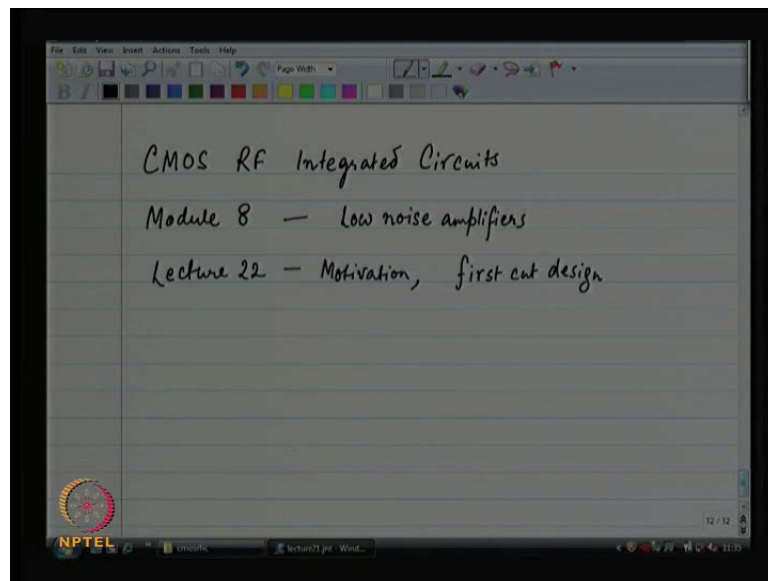 File Edit View Insert Actions Tools Help
Page Width
CMOS RF Integrated Circuits
Module 8 — Low noise amplifiers
Lecture 22 — Motivation, first cut design
12 / 12
NPTEL
cmosrfic
lecture21.jnt - Wind...
11:35